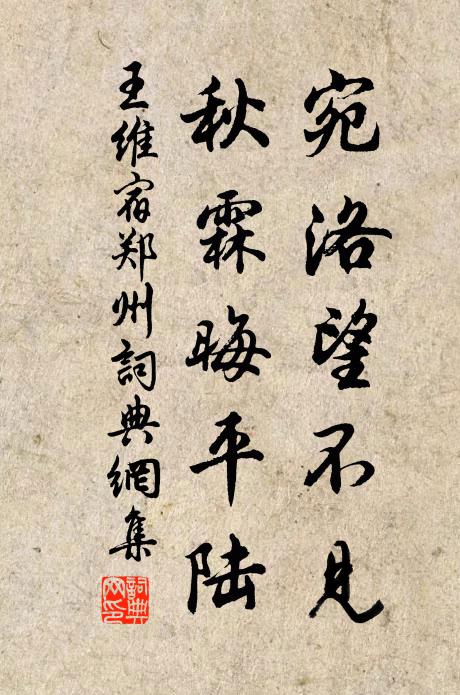 宛洛望不见
秋霖晦平陆
王维宿郑州詞典網集
詞典網印